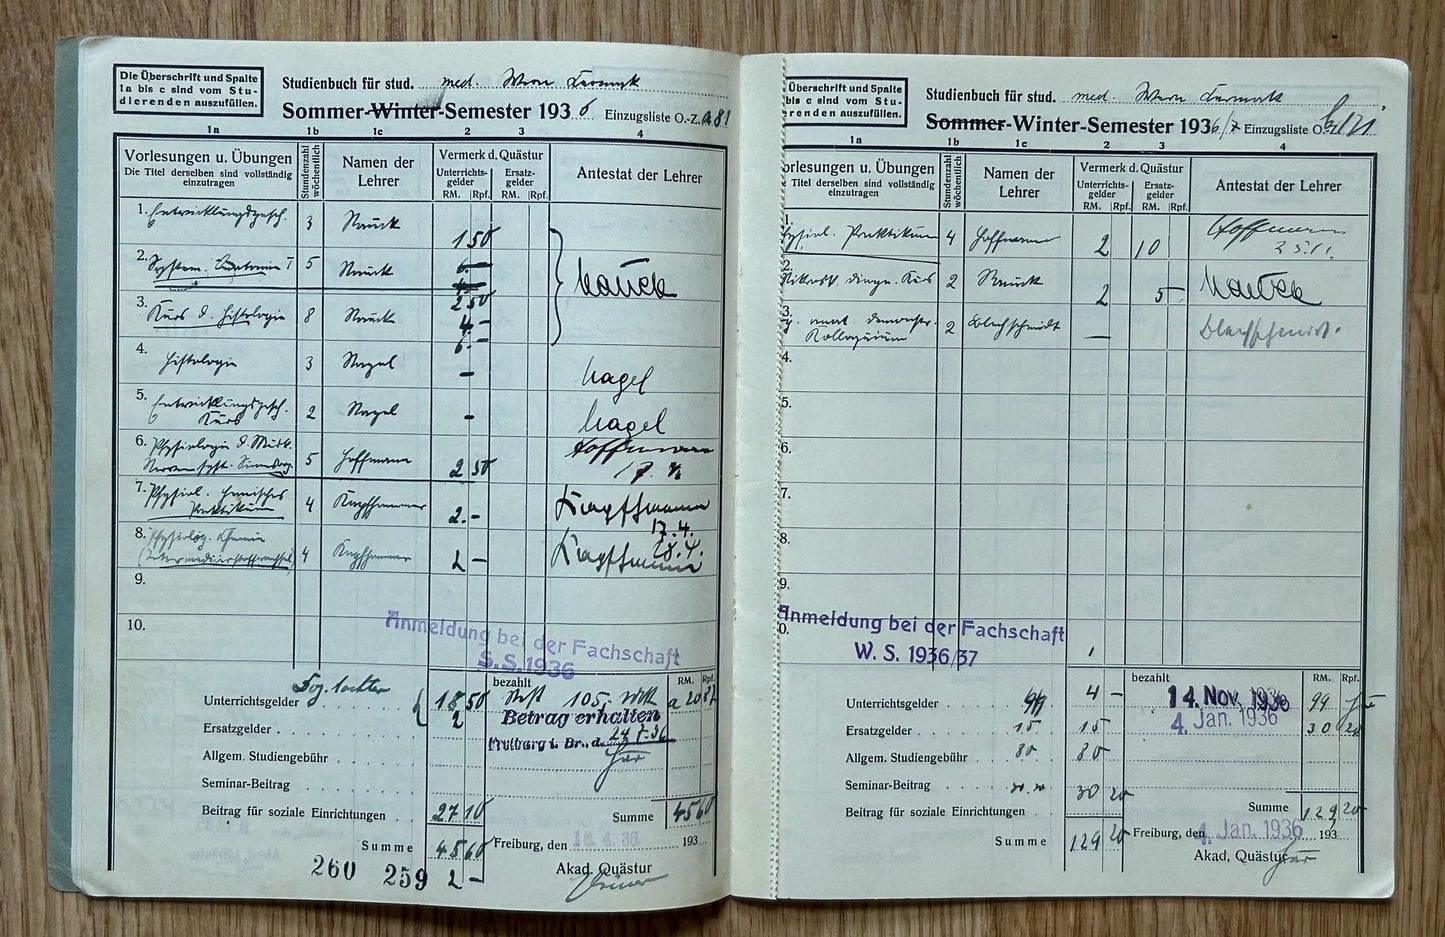 Die Überschrift und Spalte
1a bis c sind vom Stu-
dierenden auszufüllen.
Studienbuch für stud. med.
Sommer-Winter-Semester 1936 Einzugsliste O.-Z. a 81
1a 1b 1c 2 3 4
Vorlesungen u. Übungen
Die Titel derselben sind vollständig
einzutragen
Stundenzahl
wöchentlich
Namen der
Lehrer
Vermerk d. Quästur
Unterrichts-
gelder
RM. Rpf.
Ersatz-
gelder
RM. Rpf.
Antestat der Lehrer
1. Entwicklungsgesch. 3 Nauck 1 50
2. System. Anatomie I 5 Nauck Nauck
2 50
3. Kurs d. Histologie 8 Nauck 4 -
6 -
4. Histologie 3 Nagel - Nagel
5. Entwicklungsgesch.
Kurs 2 Nagel - Nagel
6. Physiologie d. Musk.
Nervensyst. Sinnesorg. 5 Hoffmann 2 50 Hoffmann
7. Physiol. chemisches
Praktikum 4 Kapfhammer 2 - Kapfhammer
17.4.
8. Physiolog. Chemie
(Intermediärstoffwechsel) 4 Kapfhammer 2 - Kapfhammer
28.4.
9.
10.
Anmeldung bei der Fachschaft
S.S. 1936
bezahlt
RM. Rpf.
Unterrichtsgelder 18 50 105,
Betrag erhalten
Ersatzgelder 2
Freiburg i. Br., d.
Allgem. Studiengebühr
Seminar-Beitrag
Beitrag für soziale Einrichtungen 27 10
Summe 45 60
Summe 45 60
Freiburg, den 16.4.36. 193
260 259 2 -
Akad. Quästur
Überschrift und Spalte
bis c sind vom Stu-
erenden auszufüllen.
Studienbuch für stud. med.
Sommer-Winter-Semester 1936/7 Einzugsliste O.
1a 1b 1c 2 3 4
orlesungen u. Übungen
Titel derselben sind vollständig
einzutragen
Stundenzahl
wöchentlich
Namen der
Lehrer
Vermerk d. Quästur
Unterrichts-
gelder
RM. Rpf.
Ersatz-
gelder
RM. Rpf.
Antestat der Lehrer
1. Physiol. Praktikum 4 Hoffmann 2 10 Hoffmann
25.11.
2. Mikrosk. diagn. Kurs 2 Nauck 2 5 - Nauck
3. anat. demonstr.
Kolloquium 2 Blechschmidt - Blechschmidt
4.
5.
6.
7.
8.
9.
0.
Anmeldung bei der Fachschaft
W. S. 1936/37
bezahlt
RM. Rpf.
Unterrichtsgelder 4 - 14. Nov. 1936 99
Ersatzgelder 15 15 4. Jan. 1936 30 20
Allgem. Studiengebühr 80 80
Seminar-Beitrag
30 20
Beitrag für soziale Einrichtungen
Summe 129 20
Summe 129 20
Freiburg, den 4. Jan. 1936 193
Akad. Quästur